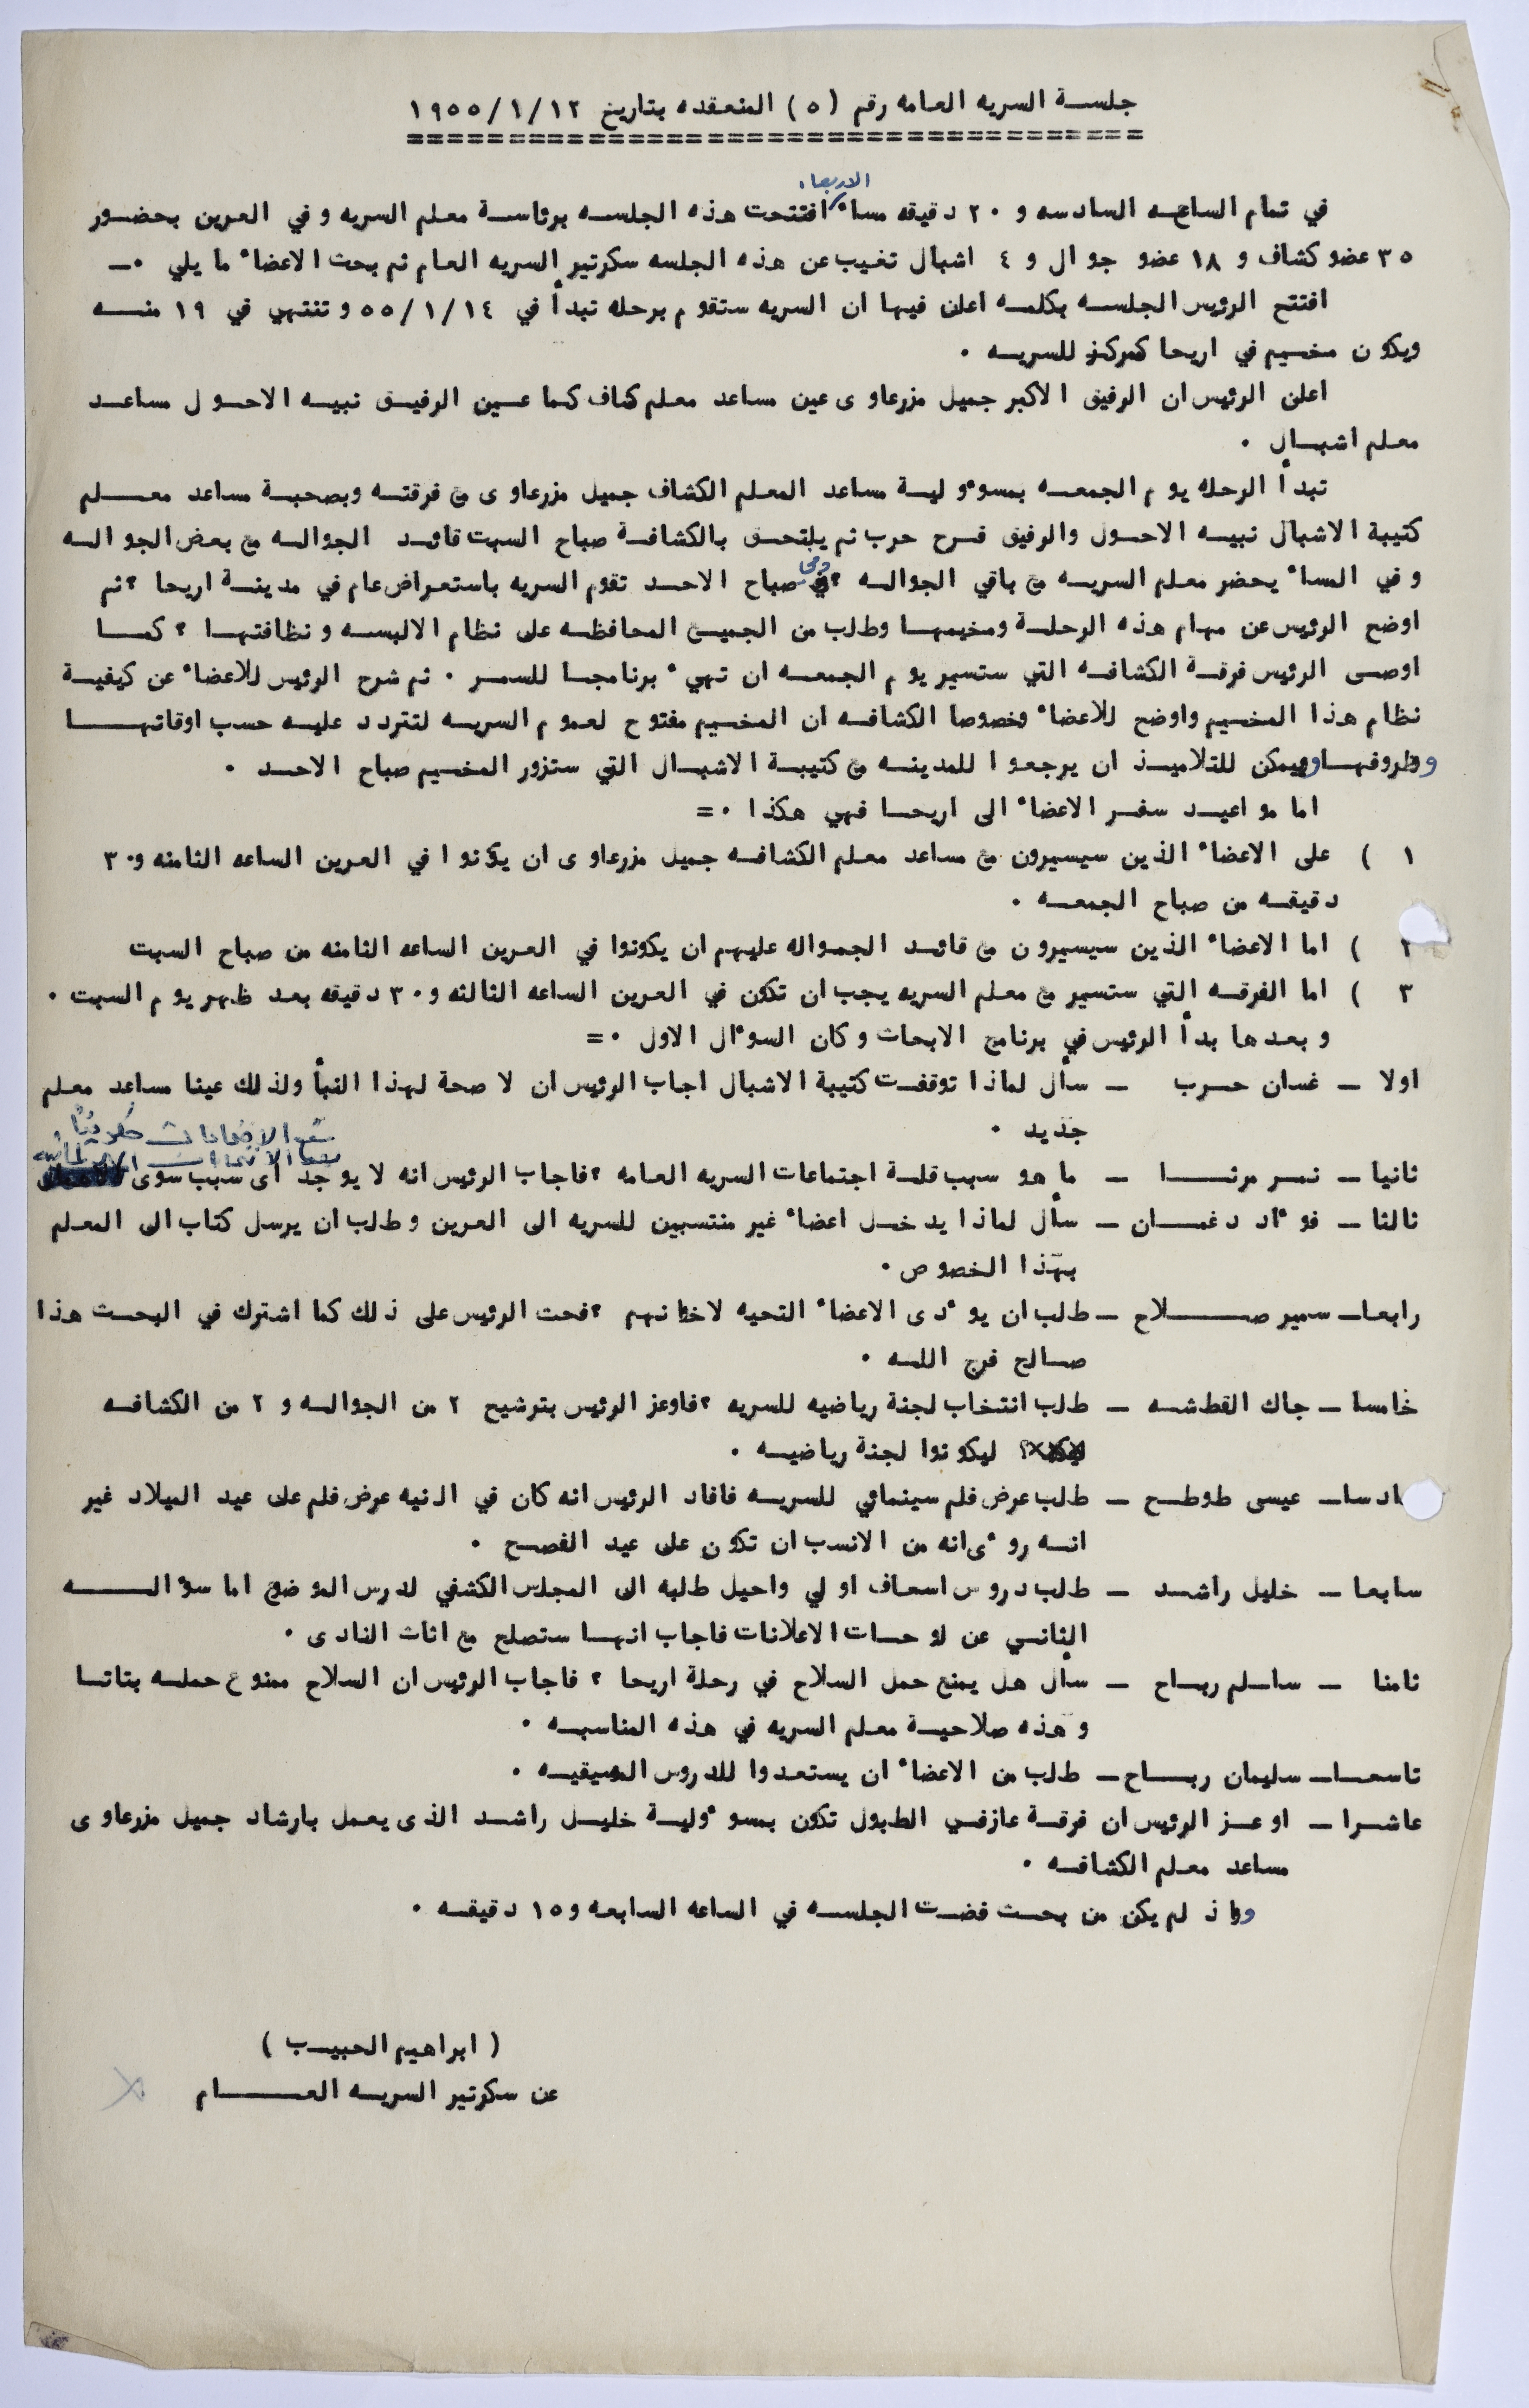 جلسة السريه العامه رقم (٥) المنعقده بتاريخ ١٩٥٥/١/١٢
====================================
الاربعاء
في تمام الساعه السادسه و ٢٠ دقيقه مساء افتتحت هذه الجلسه برئاسة معلم السريه وفي العرين بحضور
٣٥ عضو كشاف و ١٨ عضو جوال و ٤ اشبال تغيب عن هذه الجلسه سكرتير السريه العام ثم بحث الاعضاء ما يلي ٠ـ
افتتح الرئيس الجلسه بكلمه اعلن فيها ان السريه ستقوم برحله تبدأ في ٥٥/١/١٤ وتنتهي في ١٩ منه
ويكون مخيم في اريحا كمركز للسريه ٠
اعلن الرئيس ان الرفيق الاكبر جميل مزرعاوى عين مساعد معلم كشاف كما عين الرفيق نبيه الاحول مساعد
معلم اشبال ٠
تبدأ الرحله يوم الجمعه بمسوءولية مساعد المعلم الكشاف جميل مزرعاوى مع فرقته وبصحبة مساعد معلم
كتيبة الاشبال نبيه الاحول والرفيق فرح حرب ثم يلتحق بالكشافة صباح السبت قائد الجواله مع بعض الجواله
وفي المساء يحضر معلم السريه مع باقي الجواله ؟ وفي صباح الاحد تقوم السريه باستعراض عام في مدينة اريحا ؟ ثم
اوضح الرئيس عن مهام هذه الرحلة ومخيمها وطلب من الجميع المحافظه على نظام الالبسه ونظافتها ؟ كما
اوصى الرئيس فرقة الكشافه التي ستسير يوم الجمعه ان تهيء برنامجا للسمر ٠ ثم شرح الرئيس للاعضاء عن كيفية
نظام هذا المخيم واوضح للاعضاء وخصوصا الكشافه ان المخيم مفتوح لعموم السريه لتتردد عليه حسب اوقاتها
وظروفها ويمكن للتلاميذ ان يرجعوا للمدينه مع كتيبة الاشبال التي ستزور المخيم صباح الاحد ٠
اما مواعيد سفر الاعضاء الى اريحا فهي هكذا ٠=
١ ) على الاعضاء الذين سيسيرون مع مساعد معلم الكشافه جميل مزرعاوى ان يكونوا في العرين الساعه الثامنه و٣٠
دقيقه من صباح الجمعه ٠
٢ ) اما الاعضاء الذين سيسيرون مع قائد الجمواله عليهم ان يكونوا في العرين الساعه الثامنه من صباح السبت
٣ ) اما الفرقه التي ستسير مع معلم السريه يجب ان تكون في العرين الساعه الثالثه و٣٠ دقيقه بعد ظهر يوم السبت ٠
وبعدها بدأ الرئيس في برنامج الابحاث وكان السوءال الاول ٠=
اولا ـ غسان حرب ـ سأل لماذا توقفت كتيبة الاشبال اجاب الرئيس ان لا صحة لهذا النبأ ولذلك عينا مساعد معلم
جديد ٠
ثانيا ـ نمر مرثا ـ ما هو سبب قلة اجتماعات السريه العامه ؟ فاجاب الرئيس انه لا يوجد اى سبب سوى
ثالثا ـ فوءاد دغمان ـ سأل لماذا يدخل اعضاء غير منتسبين للسريه الى العرين وطلب ان يرسل كتاب الى المعلم
بهذا الخصوص ٠
رابعا ـ سمير صلاح ـ طلب ان يوءدى الاعضاء التحيه لاخوانهم ؟ فحث الرئيس على ذلك كما اشترك في البحث هذا
صالح فرج الله ٠
خامسا ـ جاك القطشه ـ طلب انتخاب لجنة رياضيه للسريه ؟ فاوعز الرئيس بترشيح ٢ من الجواله و ٢ من الكشافه
ليكونوا لجنة رياضيه ٠
ادسا ـ عيسى طوطح ـ طلب عرض فلم سينمائي للسريه فافاد الرئيس انه كان في النيه عرض فلم على عيد الميلاد غير
انه روءى انه من الانسب ان تكون على عيد الفصح ٠
سابعا ـ خليل راشد ـ طلب دروس اسعاف اولي واحيل طلبه الى المجلس الكشفي لدرس الموضوع اما سؤاله
الثاني عن لوحات الاعلانات فاجاب انها ستصلح مع اثاث النادى ٠
ثامنا ـ سالم رباح ـ سأل هل يمنع حمل السلاح في رحلة اريحا ؟ فاجاب الرئيس ان السلاح ممنوع حمله بتاتا
وهذه صلاحية معلم السريه في هذه المناسبه ٠
تاسعا ـ سليمان رباح ـ طلب من الاعضاء ان يستعدوا للدروس الموسيقيه ٠
عاشرا ـ اوعز الرئيس ان فرقة عازفي الطبول تكون بمسوءولية خليل راشد الذى يعمل بارشاد جميل مزرعاوى
مساعد معلم الكشافه ٠
واذ لم يكن من بحث فضت الجلسه في الساعه السابعه و١٥ دقيقه ٠
( ابراهيم الحبيب )
عن سكرتير السريه العام